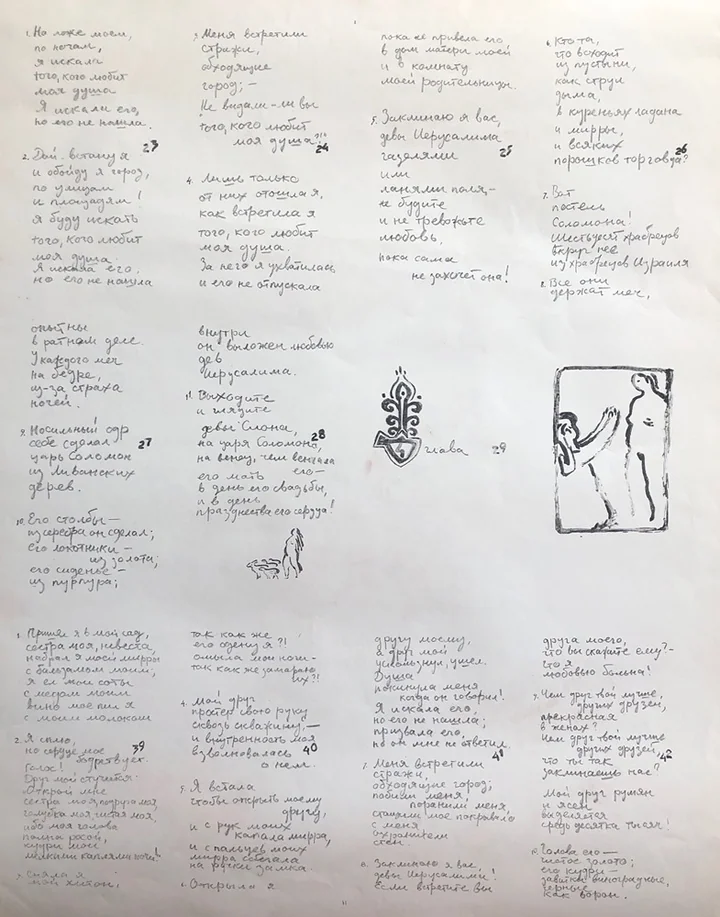 1. На ложе моем,
по ночам,
я искала
того, кого любит
моя душа
Я искала его,
но его не нашла.
23
2. Дай встану я
и обойду я город,
по улицам
и площадям!
я буду искать
того, кого любит
моя душа.
Я искала его,
но его не нашла
3. Меня встретили
стражи,
обходящие
город; –
Не видали-ли вы
того, кого любит
моя душа?!"
24
4. Лишь только
от них отошла я,
как встретила я
того, кого любит
моя душа.
За него я ухватилась
и его не отпускала
пока не привела его
в дом матери моей
и в комнату
моей родительницы.
5. Заклинаю я вас,
девы Иерусалима
25
газелями
или
ланями поля, –
не будите
и не тревожьте
любовь,
пока сама
не захочет она!
6. Кто та,
что восходит
из пустыни,
как струи
дыма,
в куреньях ладана
и мирры,
и всяких
26
порошков торговца?
7. Вот
постель
Соломона!
Шестьдесят храбрецов
вкруг нее
из храбрецов Израиля
8. Все они
держат меч,
опытны
в ратном деле.
У каждого меч
на бедре,
из-за страха
ночей.
9. Носильный одр
себе сделал
27
царь Соломон
из Ливанских
дерев.
10. Его столбы –
из серебра он сделал;
его локотники –
из золота;
его сиденье –
из пурпура;
внутри
он выложен любовью
дев
Иерусалима.
11. Выходите
и глядите
девы Сиона,
28
на царя Соломона,
на венец, чем венчала
его мать его –
в день его свадьбы,
и в день
празднества его сердца!
глава
29
1. Пришел я в мой сад,
сестра моя, невеста,
набрал я моей мирры
с бальзамом моим,
я ел мои соты
с медом моим
вино мое пил я
с моим молоком
2. Я сплю,
39
но сердце мое
бодрствует.
Голос!
Друг мой стучится:
Открой мне
сестра моя, подруга моя,
голубка моя чистая моя,
ибо моя голова
полна росой,
кудри мои
мелкими каплями ночи!
3. Сняла я
мой хитон,
так как же
его одену я?!
омыла мои ноги –
так как же замараю
их?!
4. Мой друг
протел свою руку
сквозь скважину, –
и внутренность моя
40
взволновалась
о нем.
5. Я встала
чтобы открыть моему
другу,
и с рук моих
капала мирра,
и с пальцев моих
мирра сбегала
на ручки замка.
6. Открыла я
другу моему,
а друг мой
ускользнул, ушел.
Душа
покинула меня
когда он говорил!
Я искала его,
но его не нашла;
призвала его,
но он мне не ответил.
41
7. Меня встретили
стражи,
обходящие город;
побили меня,
поранили меня,
стащили мое покрывало
с меня
охранители
стен.
8. Заклинаю я вас,
девы Иерусалима!
Если встретите вы
друга моего,
что вы скажете ему? –
что я
любовью больна!
9. Чем друг твой лучше,
других друзей,
прекрасная
в женах?
чем друг твой лучше
других друзей,
42
что ты так
заклинаешь нас?
Мой друг румян
и ясен
выделяется
средь десятка тысяч!
Голова его –
чистое золото;
его кудри –
завитки виноградные,
черные
как ворон.